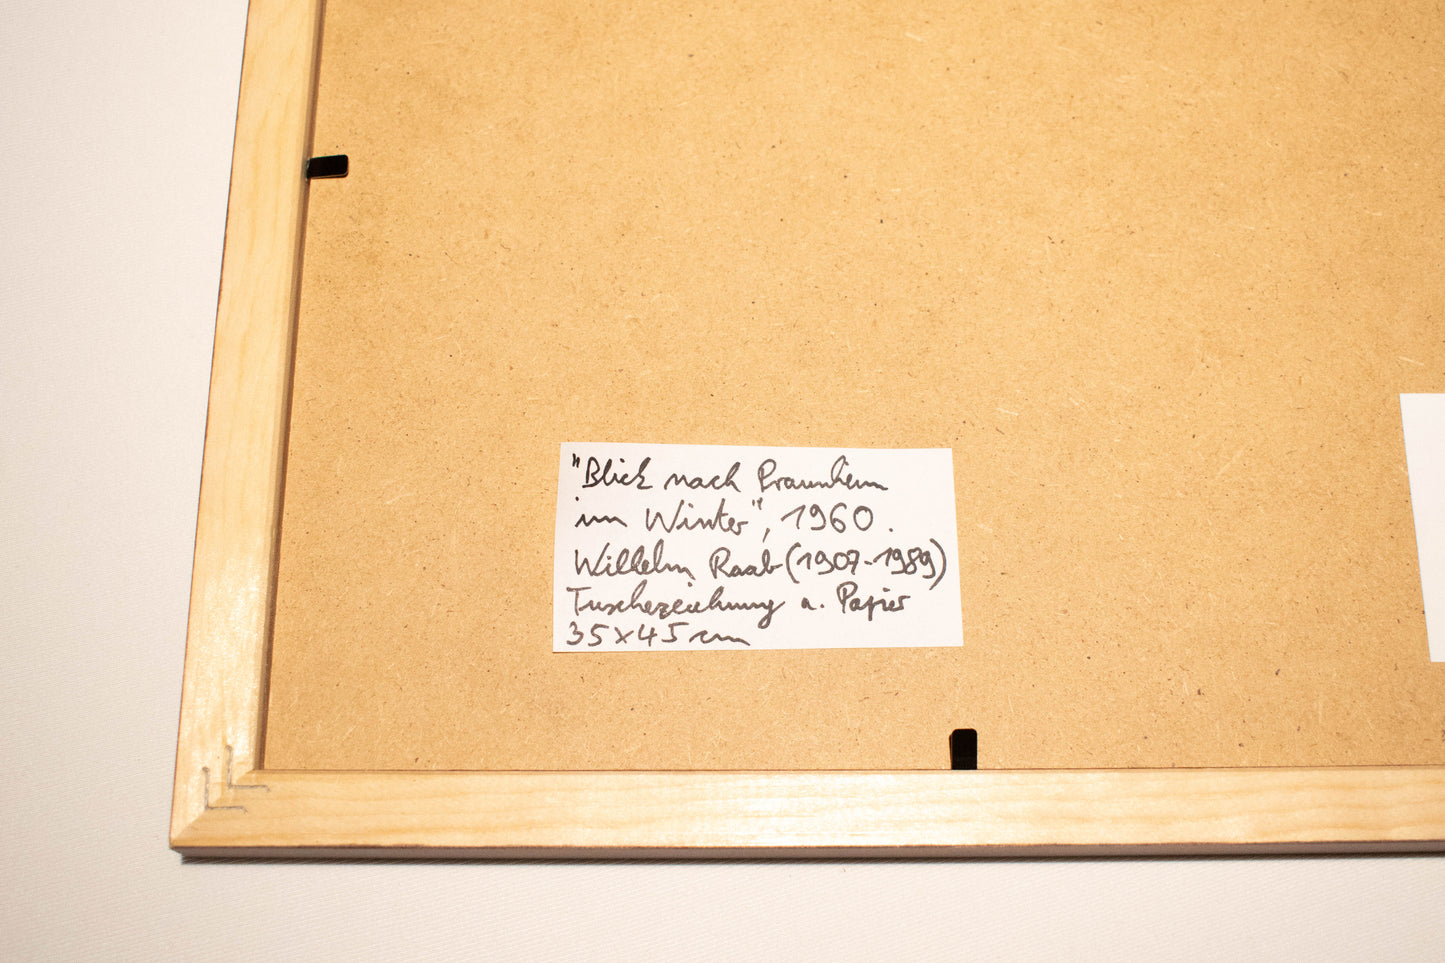 "Blick nach Praunheim
im Winter", 1960.
Wilhelm Raab (1907-1989)
Tuschezeichnung a. Papier
35x45 cm